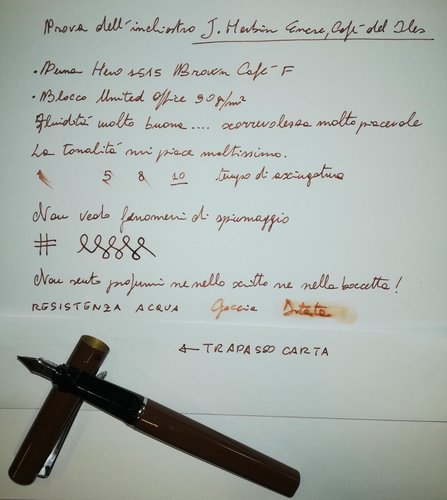 Prova dell'inchiostro J. Herbin Encre, Café des Iles
• Penna Hero 1515 Brown Café F
• Blocco United Office 90g/m²
Fluidità molto buona.... scorrevolezza molto piacevole
La tonalità mi piace moltissimo.
1 5 8 10 tempo di asciugatura
Non vedo fenomeni di spiumaggio
#
Non sento profumi ne nello scritto ne nella boccetta!
RESISTENZA ACQUA Goccia Ditata
← TRAPASSO CARTA